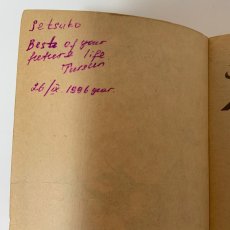 Setsuko
Bests of your
future life
26/IX 1996 year.